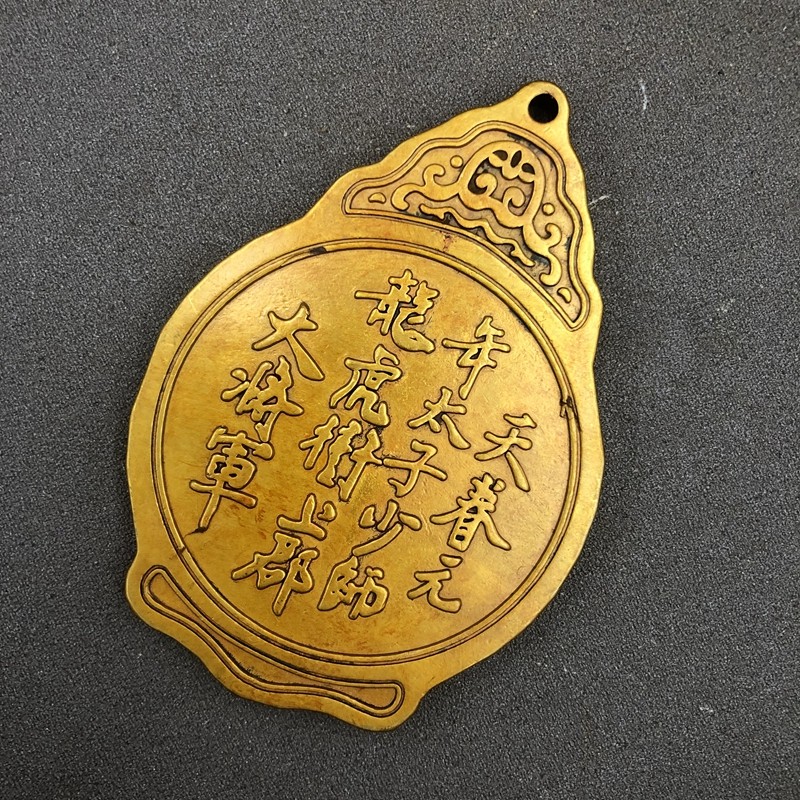 天眷元
年太子少師
龍虎衛上郡
大将軍